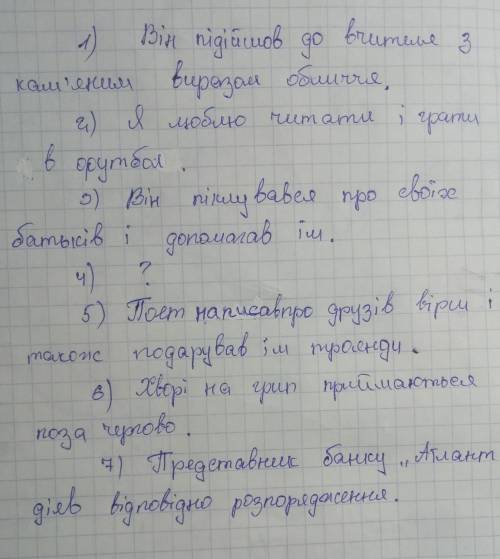 1) Він підійшов до вчителя з
кам'яним виразом обличчя.
2) Я люблю читати і грати
в футбол.
3) Він піклувався про своїх
батьків і допомагав їм.
4) ?
5) Поет написав про друзів вірш і
також подарував їм троянди.
6) Хворі на грип приймаються
поза чергово.
7) Представник банку „Атлант
діяв відповідно розпорядження.